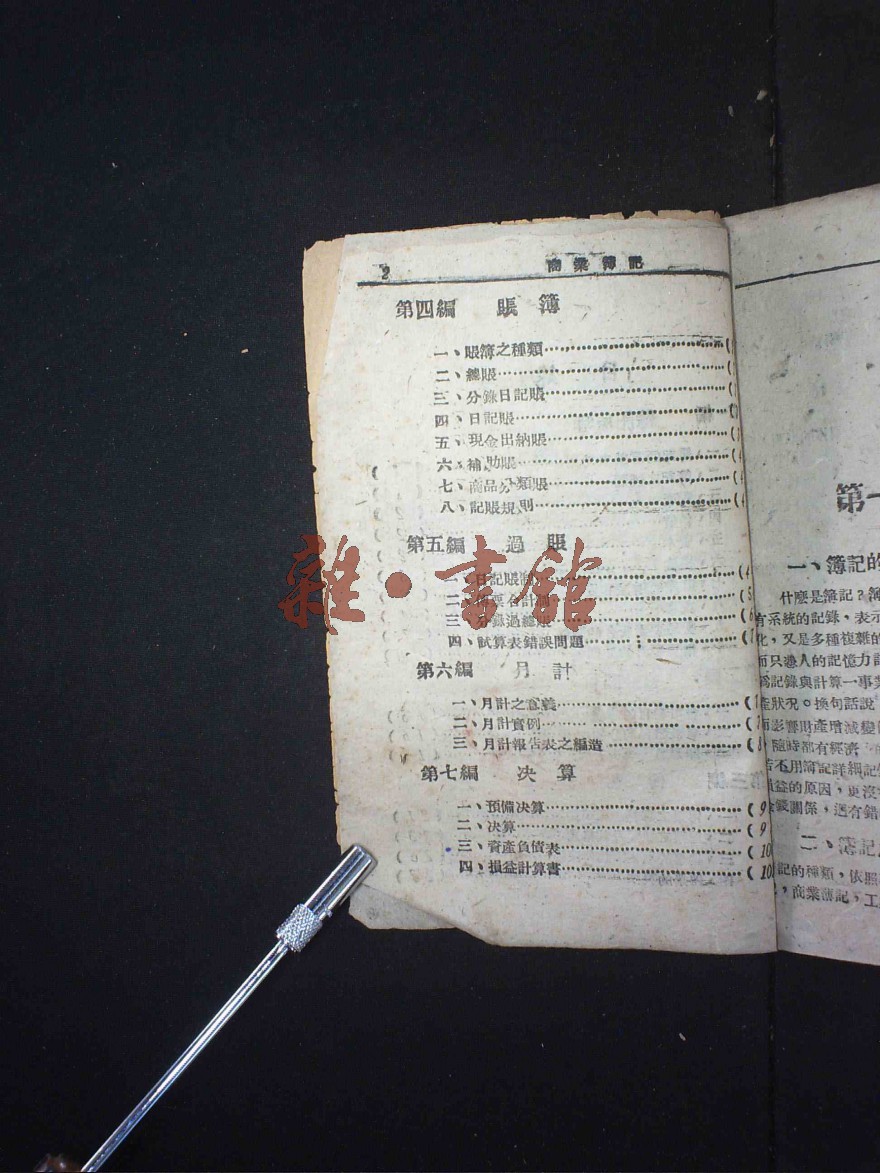 2
商業簿記
第四編 賬簿
一、賬簿之種類
二、總賬
三、分錄日記賬
四、日記賬
五、現金出納賬
六、補助賬
七、商品分類賬
八、記賬規則
第五編 過賬
一、日記賬
二、
三、分錄過總賬
四、試算表錯誤問題
第六編 月計
一、月計之意義
二、月計實例
三、月計報告表之編造
第七編 决算
一、預備决算 ( 9
二、决算 ( 9
三、資產負債表 ( 10
四、損益計算書 ( 10
雜·書館
第一
一、簿記的
什麼是簿記？簿
有系統的記錄，表示
化，又是多種複雜的
而只憑人的記憶力記
爲記錄與計算一事業
產狀况。換句話說
而影響財產增減變
，隨時都有經濟
若不用簿記詳細記
損益的原因，更沒
金錢關係，遇有錯
二、簿記
記的種類，依照
，商業簿記，工